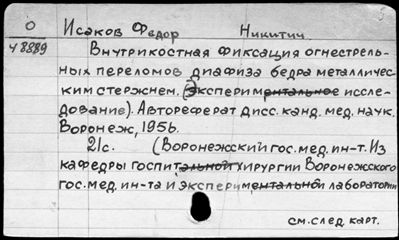 О
Исаков Федор Никитич.
Ч 8889
Внутрикостная фиксация огнестрель-
ных переломов диафиза бедра металличес-
ким стержнем. (Экспериментальное иссле-
дование). Автореферат дисс. канд. мед. наук.
Воронеж, 1956.
21с. (Воронежский гос. мед. ин-т. Из
кафедры госпитальной хирургии Воронежского
гос. мед. ин-та и экспериментальной лаборатории
см. след. карт.